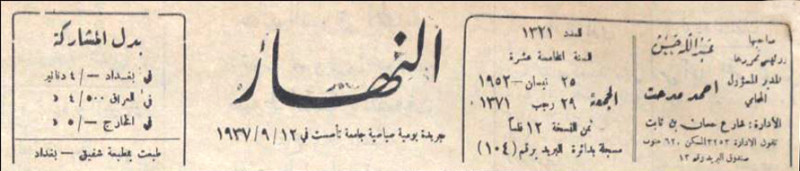 صاحبها
ورئيس تحريرها
عبدالله حسن
المدير المسؤول
المحامي
احمد مدحت
الادارة: شارع حسان بن ثابت
تلفون الادارة ٣٢٥٣ المسكن ٦٢٠ جنوب
صندوق البريد رقم ١٣
العدد ١٣٢١
السنة الخامسة عشرة
الجمعة
٢٥ نيسان - ١٩٥٢
٢٩ رجب ١٣٧١
ثمن النسخة ١٢ فلساً
مسجلة بدائرة البريد برقم (١٠٤)
النهار
جريدة يومية سياسية جامعة تأسست في ١٢/٩/١٩٣٧
بدل المشاركة
في بغداد -/٤ دنانير
في العراق ٥٠٠/٤ د
في الخارج -/٥ د
طبعت بمطبعة شفيق - بغداد